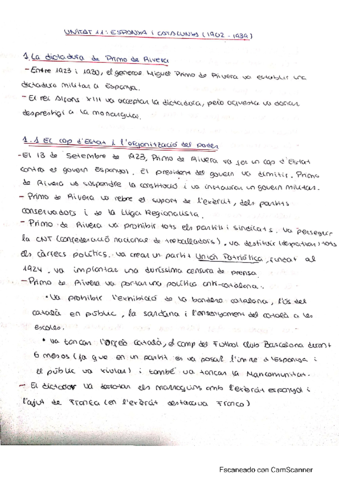 UNITAT 11: ESPANYA I CATALUNYA (1902 - 1939)
1. La dictadura de Primo de Rivera
- Entre 1923 i 1930, el general Miguel Primo de Rivera va establir una
dictadura militar a Espanya.
- El rei Alfons XIII va acceptar la dictadura, però aquesta va causar
desprestigi a la monarquia.
1.1 El cop d'Estat i l'organització del poder
- El 13 de Setembre de 1923, Primo de Rivera va fer un cop d'Estat
contra el govern Espanyol. El president del govern va dimitir. Primo
de Rivera va suspendre la constitució i va instaurar un govern militar.
- Primo de Rivera va rebre el suport de l'exèrcit, dels partits
conservadors i de la Lliga Regionalista.
- Primo de Rivera va prohibir tots els partits i sindicats. Va perseguir
la CNT (confederació nacional de treballadors), va destituir tots
els càrrecs polítics. Va crear un partit Unión Patriótica, fundat al
1924, va implantar una duríssima censura de premsa.
- Primo de Rivera va portar una política anti-catalana.
• Va prohibir l'exhibició de la bandera catalana, l'ús del
català en públic, la sardana i l'ensenyament del català a les
escoles.
• Va tancar l'Orfeó català, el camp del Futbol Club Barcelona durant
6 mesos (ja que en un partit es va posar l'himne d'Espanya i
el públic va xiular) i també va tancar la Mancomunitat.
- El dictador va derrotar els marroquins amb l'exèrcit espanyol i
l'ajut de França (en l'exèrcit destacava Franco)
Escaneado con CamScanner